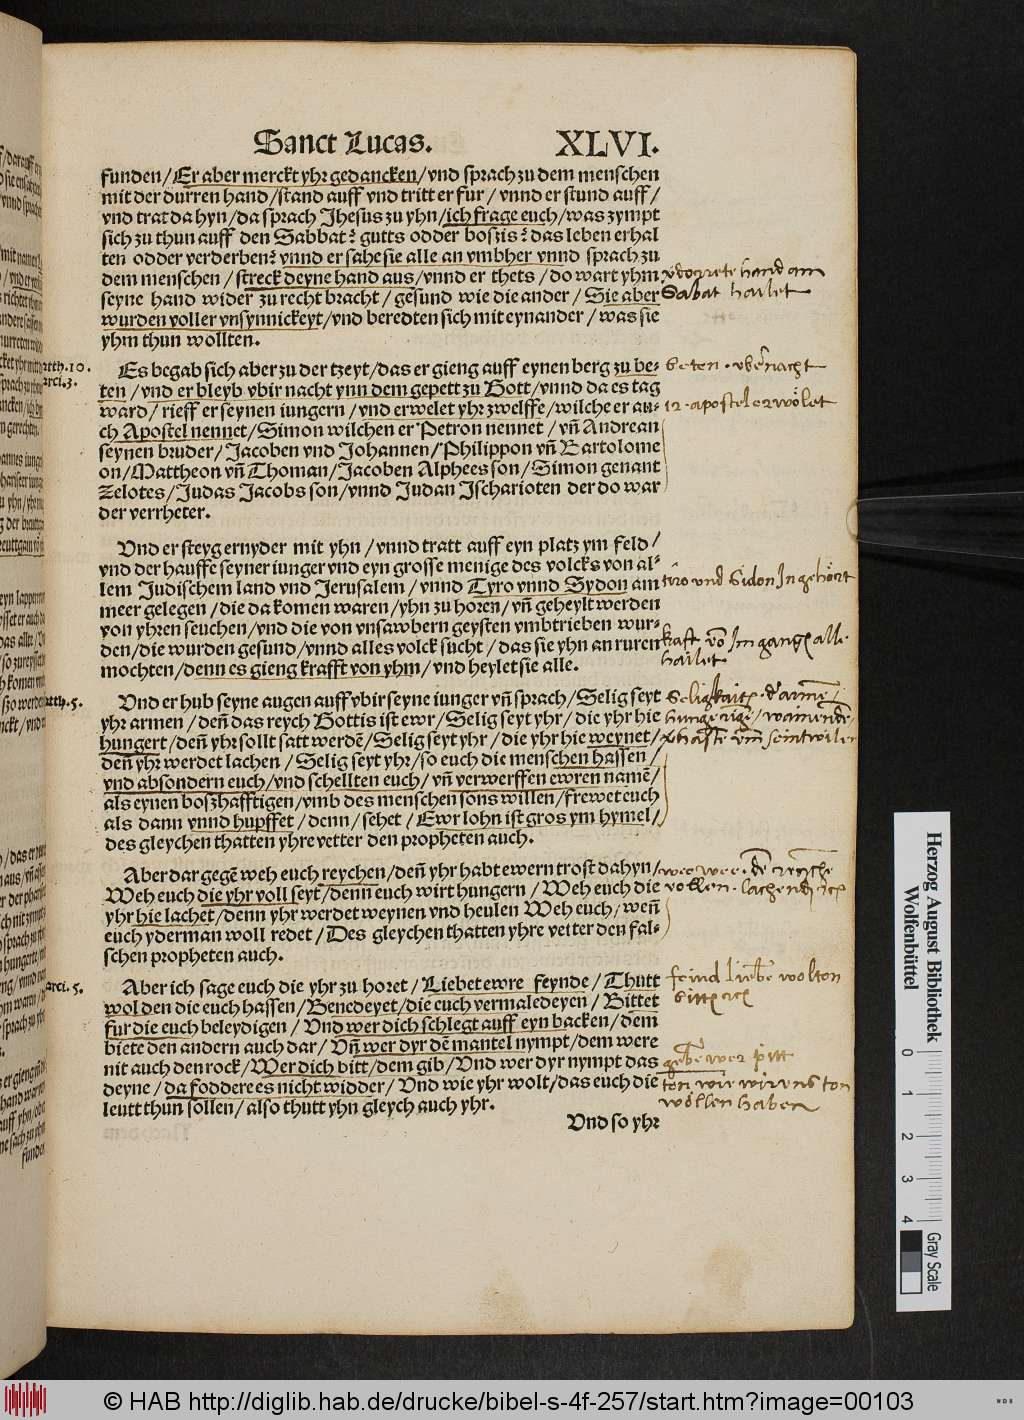 Sanct Lucas. XLVI.
funden/Er aber merckt yhr gedancken/vnd sprach zu dem menschen
mit der durren hand/stand auff vnd tritt er fur/vnnd er stund auff/
vnd trat da hyn/da sprach Jhesus zu yhn/ich frage euch/was zympt
sich zu thun auff den Sabbat? gutts odder boszis? das leben erhal
ten odder verderben? vnnd er sahe sie alle an vmbher vnnd sprach zu
dem menschen/streck deyne hand aus/vnnd er thets/do wart yhm
seyne hand wider zu recht bracht/gesund wie die ander/Sie aber
wurden voller vnsynnickeyt/vnd beredten sich mit eynander/was sie
yhm thun wollten.
dorrete hand am
Sabat hailet
Es begab sich aber zu der tzeyt/das er gieng auff eynen berg zu be-
ten/vnd er bleyb vbir nacht ynn dem gepett zu Gott/vnnd da es tag
ward/rieff er seynen iungern/vnd erwelet yhr zwelffe/wilche er au-
ch Apostel nennet/Simon wilchen er Petron nennet/vn̄ Andrean
seynen bruder/Jacoben vnd Johannen/Philippon vn̄ Bartolome
on/Mattheon vn̄ Thoman/Jacoben Alphees son/Simon genant
Zelotes/Judas Jacobs son/vnnd Judan Jscharioten der do war
der verrheter.
atth.10.
arci.3.
beten. vbernacht
12. apostel erwölet
Vnd er steyg ernyder mit yhn/vnnd tratt auff eyn platz ym feld/
vnd der hauffe seyner iunger vnd eyn grosse menige des volcks von al-
lem Judischem land vnd Jerusalem/vnnd Tyro vnnd Sydon am
meer gelegen/die da komen waren/yhn zu horen/vn̄ geheylt werden
von yhren seuchen/vnd die von vnsawbern geysten vmbtrieben wur-
den/die wurden gesund/vnnd alles volck sucht/das sie yhn an ruren
mochten/denn es gieng krafft von yhm/vnd heylet sie alle.
tiro vnd Sidon Jn gehört
kraft vō Jm gang alle
hailet
Vnd er hub seyne augen auff vbir seyne iunger vn̄ sprach/Selig seyt
yhr armen/den̄ das reych Gottis ist ewr/Selig seyt yhr/die yhr hie
hungert/den̄ yhr sollt satt werdē/Selig seyt yhr/die yhr hie weynet/
den̄ yhr werdet lachen/Selig seyt yhr/so euch die menschen hassen/
vnd absondern euch/vnd schellten euch/vn̄ verwerffen ewren namē/
als eynen boszhafftigen/vmb des menschen sons willen/frewet euch
als dann vnnd hupffet/denn/sehet/Ewr lohn ist gros ym hymel/
des gleychen thatten yhre vetter den propheten auch.
atth.5.
Seligkait. d' arme/
hungerige/wainende
Aber dar gegē weh euch reychen/den̄ yhr habt ewern trost dahyn/
Weh euch die yhr voll seyt/denn euch wirt hungern/Weh euch die
yhr hie lachet/denn yhr werdet weynen vnd heulen Weh euch/wen̄
euch yderman woll redet/Des gleychen thatten yhre vetter den fal-
schen propheten auch.
wee wee. de reiche
vollen. lachend
Aber ich sage euch die yhr zu horet/Liebet ewre feynde/Thutt
wol den die euch hassen/Benedeyet/die euch vermaledeyen/Bittet
fur die euch beleydigen/Vnd wer dich schlegt auff eyn backen/dem
biete den andern auch dar/Vn̄ wer dyr dē mantel nympt/dem were
nit auch den rock/Wer dich bitt/dem gib/Vnd wer dyr nympt das
deyne/da foddere es nicht widder/Vnd wie yhr wolt/das euch die
leutt thun sollen/also thutt yhn gleych auch yhr.
arci. 5.
feind liebe wolton
gebe wer pitt
ton wir wir vns ton
wöllen haben
Vnd so yhr
Herzog August Bibliothek
Wolfenbüttel
0 1 2 3 4
Gray Scale
© HAB http://diglib.hab.de/drucke/bibel-s-4f-257/start.htm?image=00103